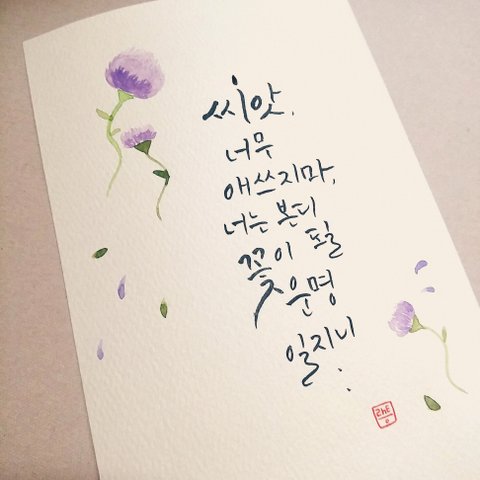 씨앗,
너무
애쓰지마,
너는 본디
꽃이 필
운명
일지니
: